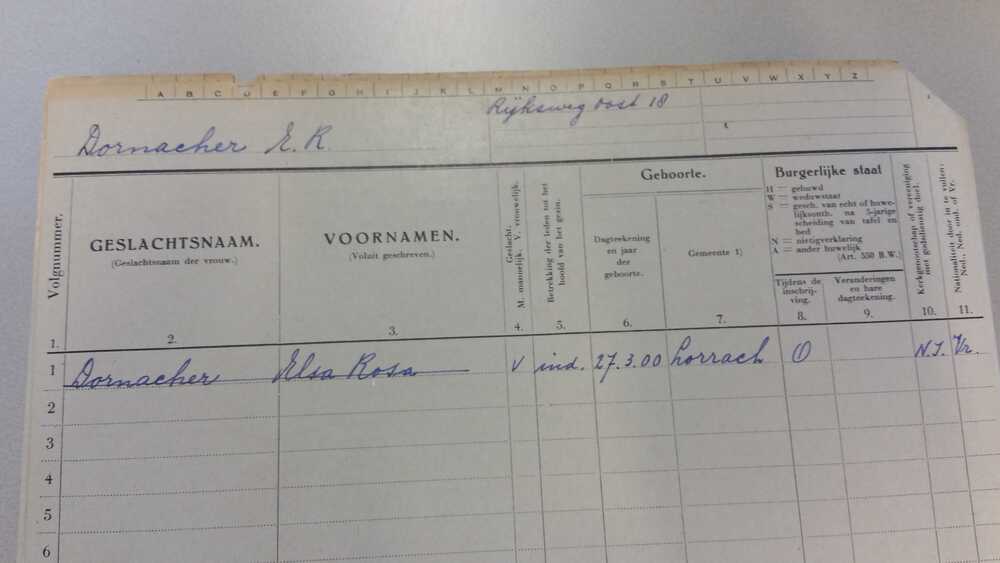 A B C D E F G H I J K L M N O P Q R S T U V W X Y Z
Rijksweg Oost 18
Dornacher E. R.
Volgnummer.
GESLACHTSNAAM.
(Geslachtsnaam der vrouw.)
VOORNAMEN.
(Voluit geschreven.)
Geslacht.
M. mannelijk, V. vrouwelijk.
Betrekking der leden tot het
hoofd van het gezin.
Geboorte.
Dagteekening
en jaar
der
geboorte.
Gemeente 1)
Burgerlijke staat
H = gehuwd
W = weduwstaat
S = gesch. van echt of huwe-
lijksontb. na 5-jarige
scheiding van tafel en
bed
N = nietigverklaring
A = ander huwelijk
(Art. 550 B.W.)
Tijdens de
inschrij-
ving.
Veranderingen
en hare
dagteekening.
Kerkgenootschap of vereeniging
met godsdienstig doel.
Nationaliteit door in te vullen:
Ned., Ned. ond. of Vr.
1. 2. 3. 4. 5. 6. 7. 8. 9. 10. 11.
1 Dornacher Elsa Rosa V ind. 27.3.00 Lorrach O N.I. Vr.
2
3
4
5
6